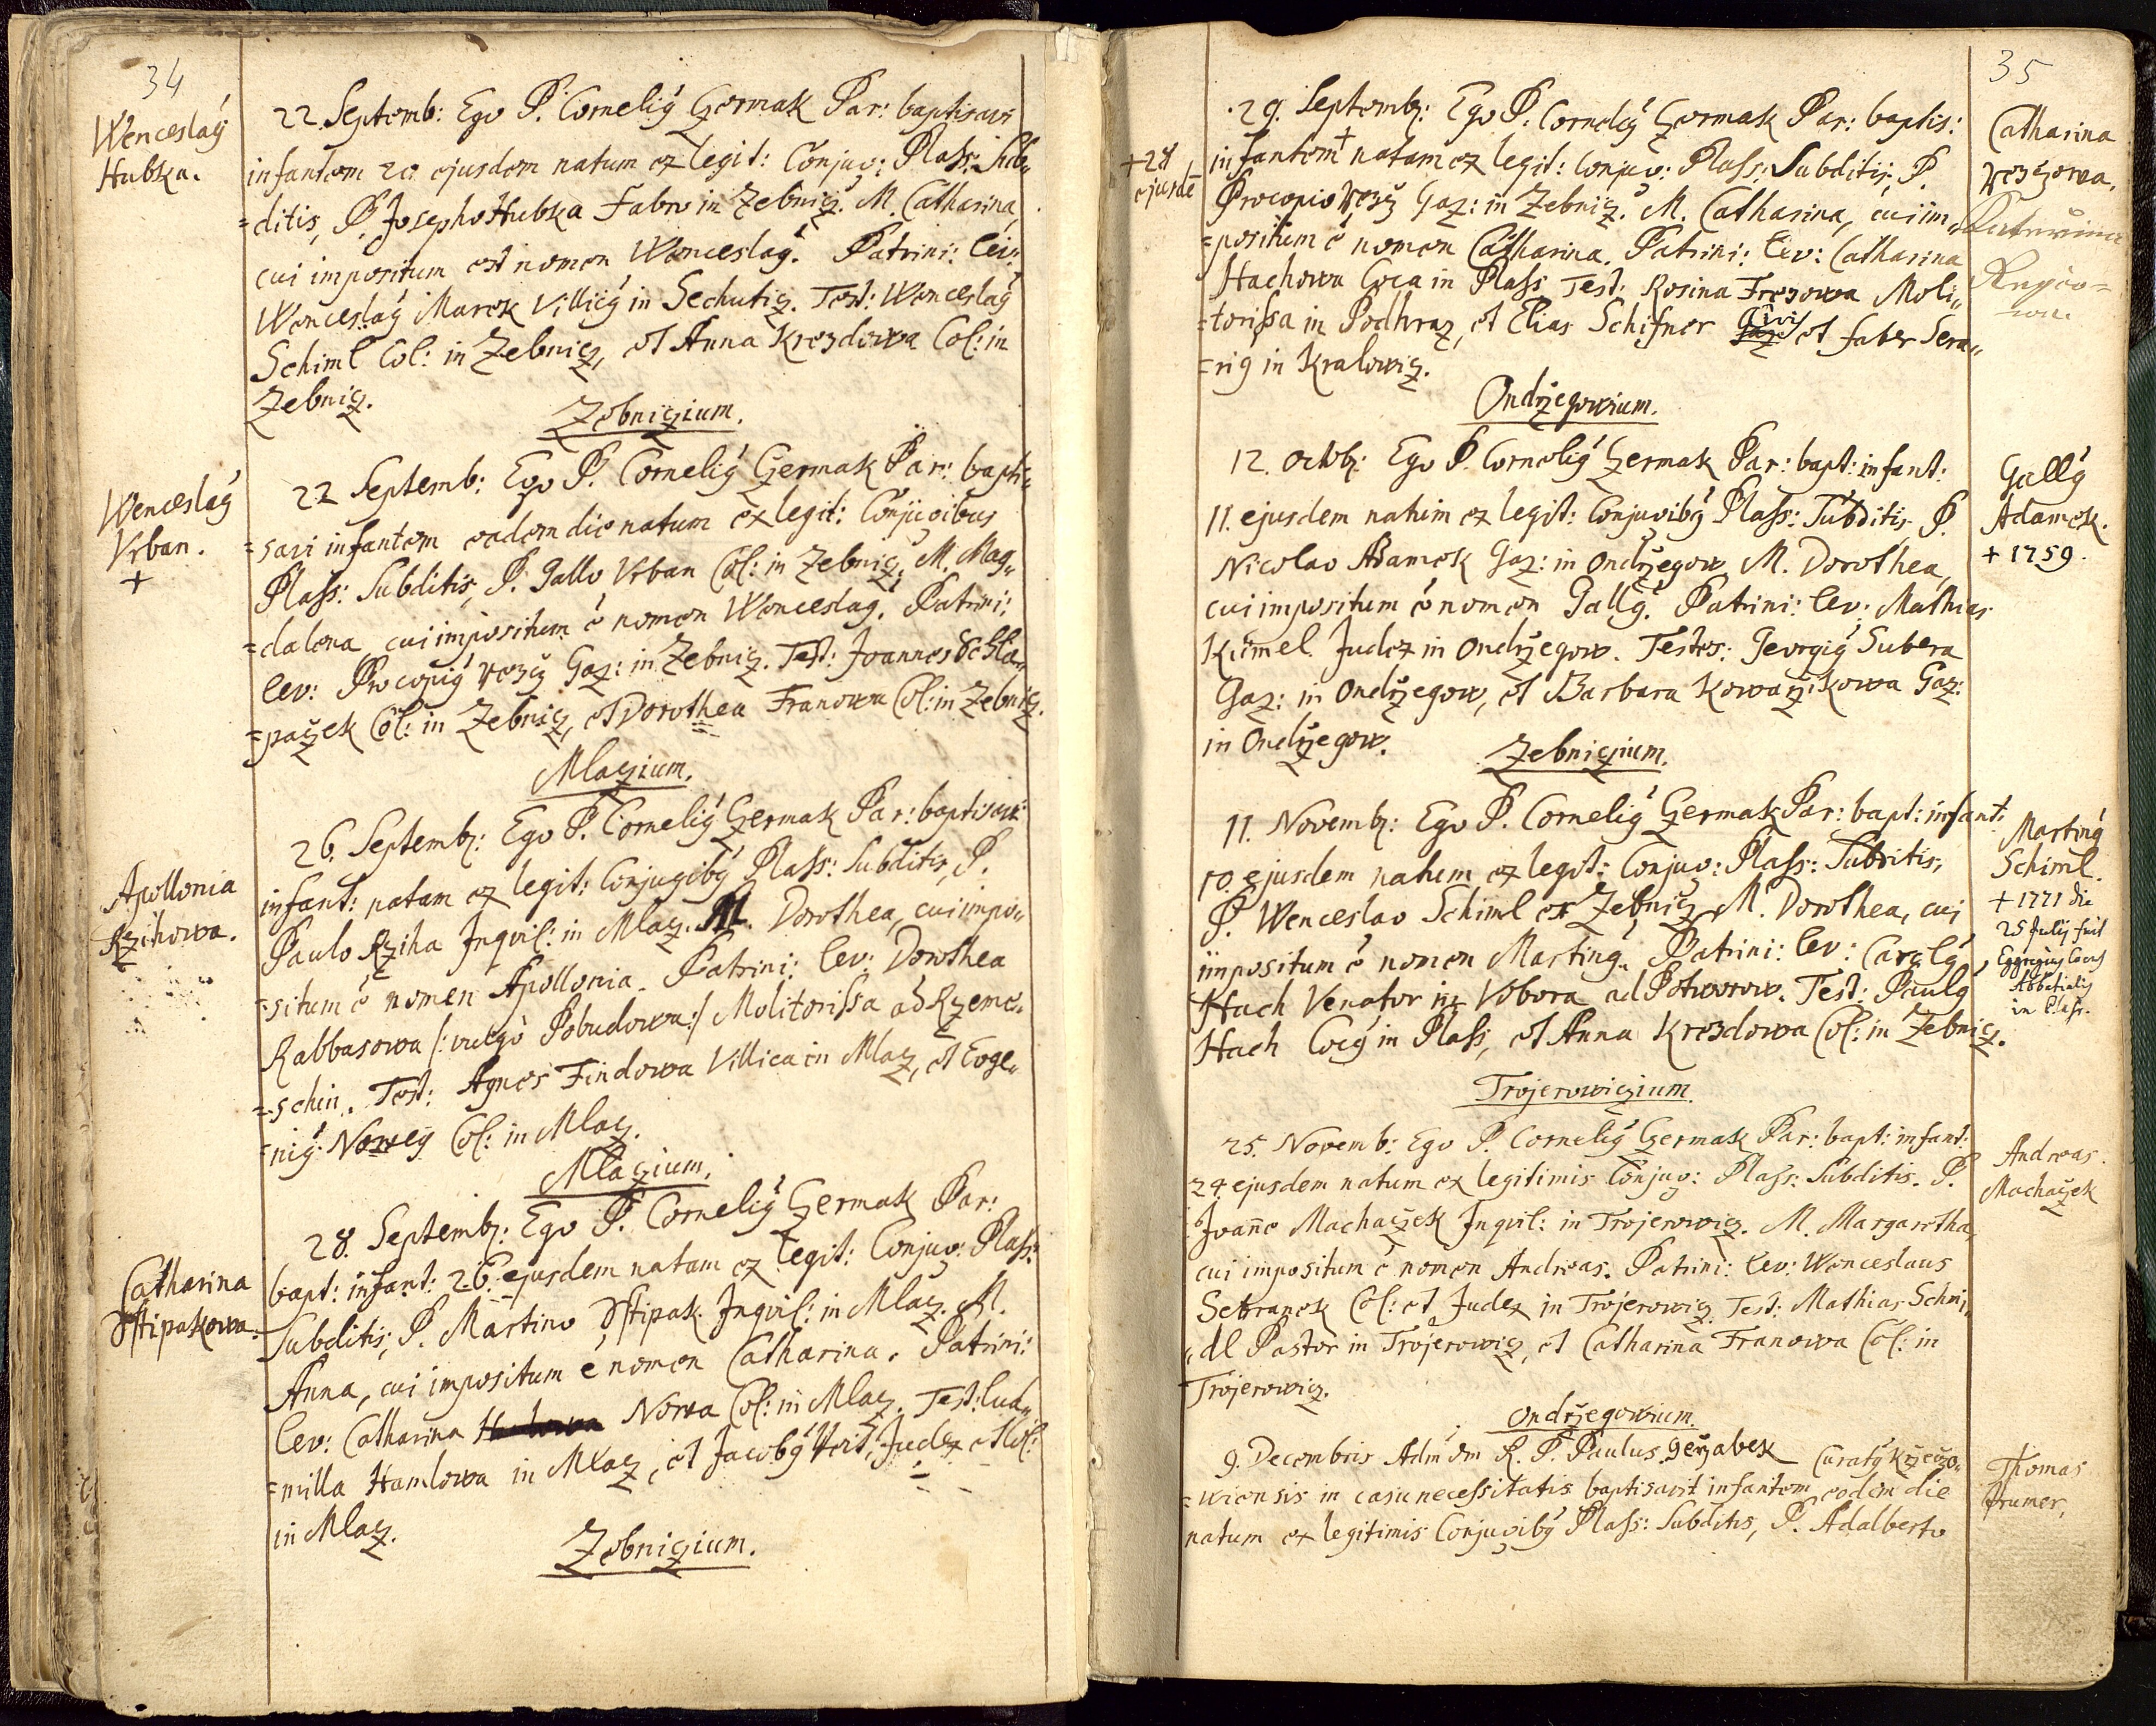 34
Wenceslaý
Hubka.
22. Septemb: Ego P. Cornelig Czermak Par: baptisavi
infantem 20 ejusdem natum ex legit: Conjug: Plass: Sub„
=ditis, P. Josepho Hubka Fabro in Zebnicz. M. Catharina,
cui impositum est nomen Wenceslaý. Patrini: lev:
Wenceslaý Marek Villicý in Sechutiz. Test: Wenceslaý
Schiml Col: in Zebnicz, et Anna Krezdowa Col: in
Zebnicz.
Zebniczium.
Wenceslaý
Vrban.
+
22 Septemb: Ego P. Cornelig Czermak Par: bapti„
=savi infantem eadem die natum ex legit: Conjugibus
Plass: Subditis, P. Gallo Vrban Col: in Zebnicz, M. Mag„
=dalena, cui impositum ẽ nomen Wenceslaý. Patrini:
lev: Procopiý Gaz: in Zebnicz. Test: Joannes Schla„
=paczek Col: in Zebnicz, et Dorothea Franowa Col: in Zebnicz.
Mlaczium.
Apollonia
Rzihowa.
26. Septemb: Ego P. Cornelig Czermak Par: baptisavi
infant: natam ex legit: Conjugibý Plass: Subditis, P.
Paulo Rziha Inqvil: in Mlacz. M. Dorothea, cui impo„
=situm ẽ nomen Apollonia. Patrini: lev: Dorothea
Rabbasowa /: vulgò Pobudowa :/ Molitorissa ad Rzeme„
=schin. Test: Agnes Findowa Villica in Mlacz, et Euge„
=nig Noweý Col: in Mlacz.
Mlaczium.
Catharina
Osstipakowa.
28. Septemb: Ego P. Cornelig Czermak Par:
bapt: infant: 26. ejusdem natam ex legit: Conjug: Plass:
Subditis, P. Martino Osstipak Inqvil: in Mlacz. M.
Anna, cui impositum ẽ nomen Catharina. Patrini:
lev: Catharina Nowa Col: in Mlacz. Test: Lud„
=milla Hamlowa in Mlacz, et Jacobý Judex et Col:
in Mlacz.
Zebniczium.
35
29. Septemb: Ego P. Cornelig Czermak Par: baptis:
+28
ejusdē
infantem + natam ex legit: Conjug: Plass: Subditis, P.
Procopio Gaz: in Zebnicz. M. Catharina, cui im„
=positum ẽ nomen Catharina. Patrini: lev: Catharina
Hachowa Coca in Plass Test: Rosina Frezowa Moli„
=torissa in Podhraz, et Elias Schifner Civis et faber Sera„
=rig in Kralowicz.
Catharina
Ondrzegowium.
12. Octob: Ego P. Cornelig Czermak Par: bapt: infant:
11. ejusdem natum ex legit: Conjugibý Plass: Subditis, P.
Nicolao Adamek Gaz: in Ondrzegow, M. Dorothea,
cui impositum ẽ nomen Gallý. Patrini: lev: Mathias
Kümel Judex in Ondrzegow. Testes: Georgiý Subera
Gaz: in Ondrzegow, et Barbara Kowarzikowa Gaz:
in Ondrzegow.
Gallý
Adamek.
+ 1759.
Zebniczium.
11. Novemb: Ego P. Cornelig Czermak Par: bapt: infant:
10. ejusdem natum ex legit: Conjug: Plass: Subditis,
P. Wenceslao Schiml ex Zebnicz, M. Dorothea, cui
impositum ẽ nomen Martiný. Patrini: lev: Carolý
Hach Venator in Vobora ad Potworow. Test: Paulý
Hach Cocý in Plass, et Anna Krezdowa Col: in Zebnicz.
Martiný
Schiml.
+ 1771 die
25 Julij fuit
Egregius Cocus
Abbatialis
in Plass.
Trojerowiczium.
25. Novemb: Ego P. Cornelig Czermak Par: bapt: infant:
24 ejusdem natum ex legitimis Conjug: Plass: Subditis. P.
Joañe Machaczek Inqvil: in Trojerowicz. M. Margaretha,
cui impositum ẽ nomen Andreas. Patrini: lev: Wenceslaus
Sebranek Col: et Judex in Trojerowicz. Test: Mathias Schmi„
„dl Pastor in Trojerowicz, et Catharina Franowa Col: in
Trojerowicz.
Andreas
Machaczek
Ondrzegowium.
9. Decembris Adm̄ dm̄ R. P. Paulus Gerzabek Curatý Krzeczo„
=wiensis in casu necessitatis baptisavit infantem eodem die
natum ex legitimis Conjugibý Plass: Subditis, P. Adalberto
Thomas
Prumer,